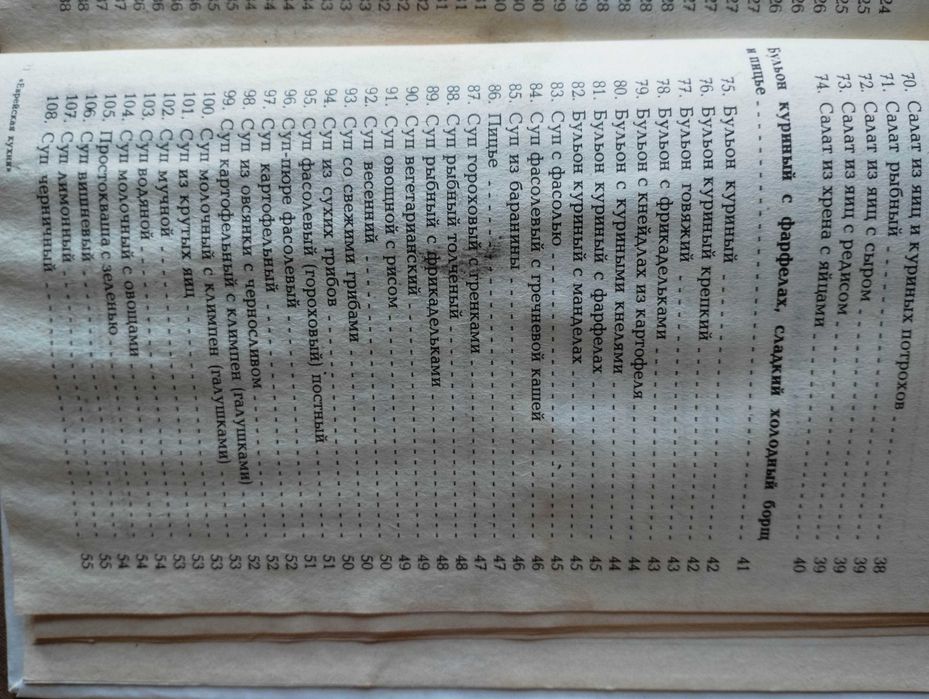 70. Салат из яиц и куриных потрохов 38
71. Салат рыбный 39
72. Салат из яиц с сыром 39
73. Салат из яиц с редисом 39
74. Салат из хрена с яйцами 40
Бульон куриный с фарфелах, сладкий холодный борщ
и пицье 41
75. Бульон куриный 42
76. Бульон куриный крепкий 42
77. Бульон говяжий 43
78. Бульон с фрикадельками 43
79. Бульон с кнейдлах из картофеля 44
80. Бульон с куриными кнелями 44
81. Бульон куриный с фарфелах 45
82. Бульон куриный с манделах 45
83. Суп с фасолью 45
84. Суп фасолевый с гречневой кашей 46
85. Суп из баранины 46
86. Пицье 47
87. Суп гороховый с гренками 47
88. Суп рыбный толченый 48
89. Суп рыбный с фрикадельками 48
90. Суп вегетарианский 49
91. Суп овощной с рисом 49
92. Суп весенний 50
93. Суп со свежими грибами 50
94. Суп из сухих грибов 50
95. Суп фасолевый (гороховый) постный 51
96. Суп-пюре фасолевый 51
97. Суп картофельный 52
98. Суп из овсянки с черносливом 52
99. Суп картофельный с климпен (галушками) 52
100. Суп молочный с климпен (галушками) 53
101. Суп из крутых яиц 53
102. Суп мучной 53
103. Суп водяной 53
104. Суп молочный с овощами 54
105. Простокваша с зеленью 54
106. Суп вишневый 54
107. Суп лимонный 55
108. Суп черничный 55
«Еврейская кухня»